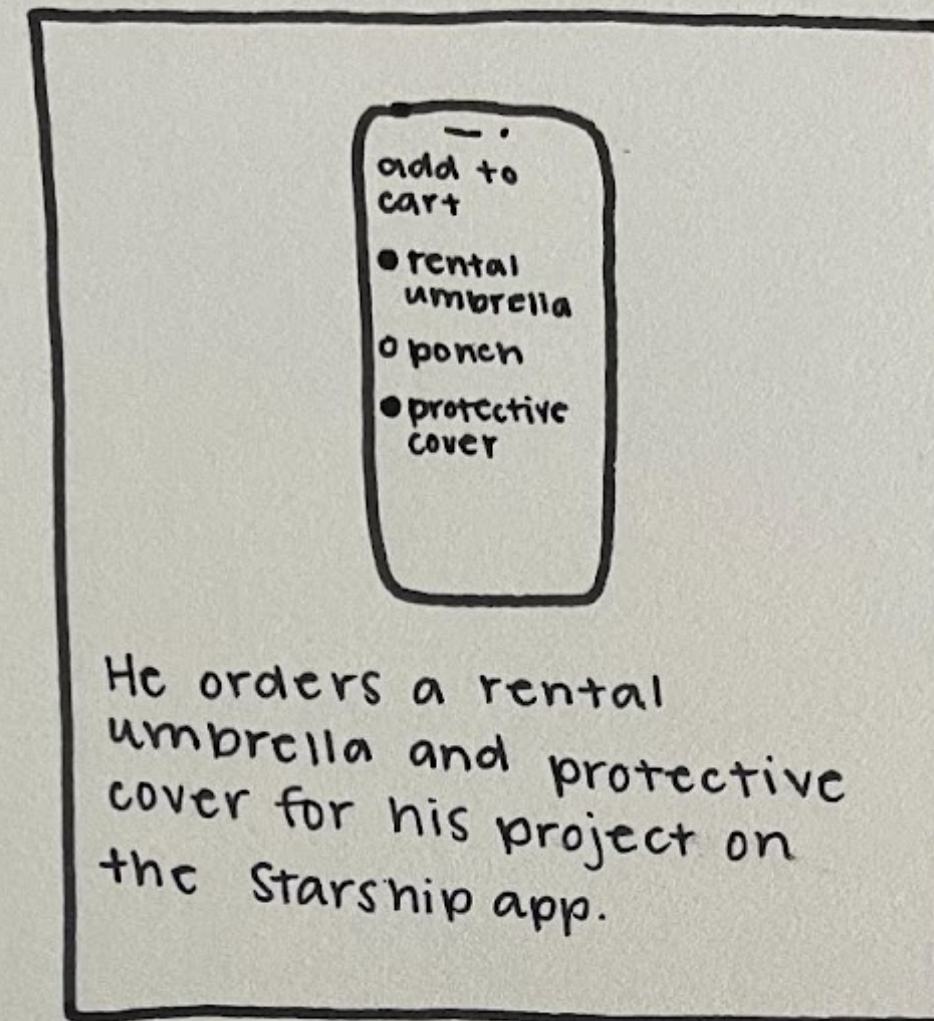 add to
cart
rental
umbrella
ponch
protective
cover
He orders a rental
umbrella and protective
cover for his project on
the starship app.